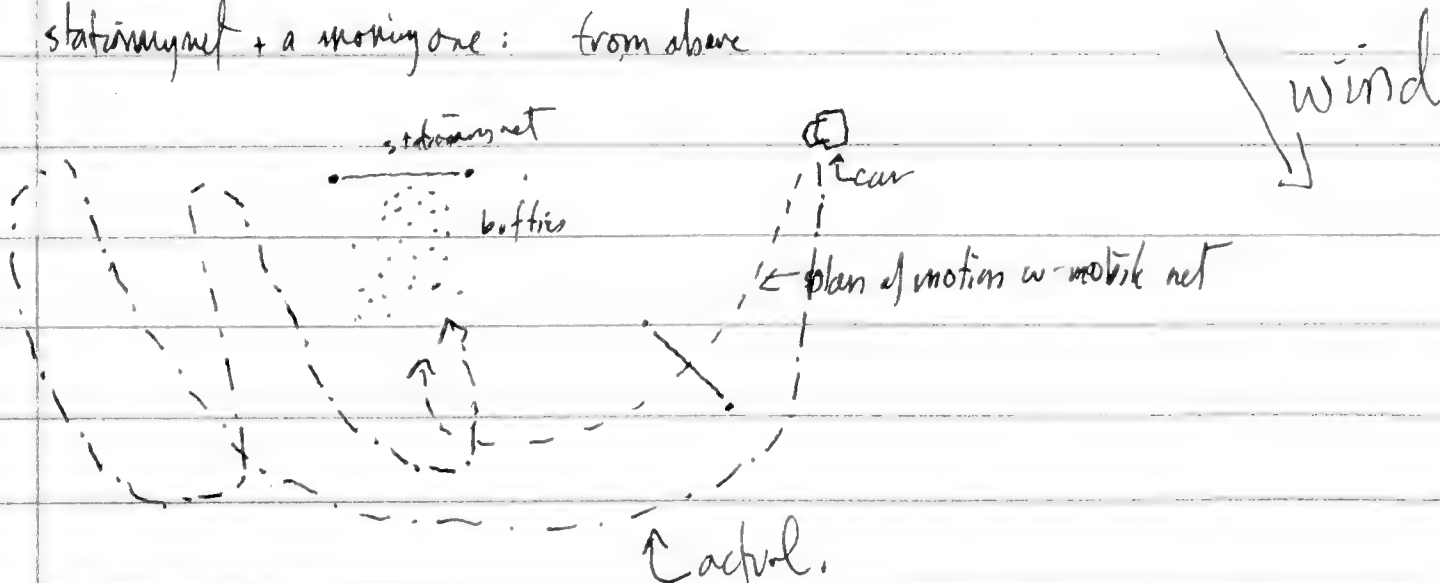 stationary net + a moving one: from above
wind
stationary net
car
buffies
plan of motion w- mobile net
actual.